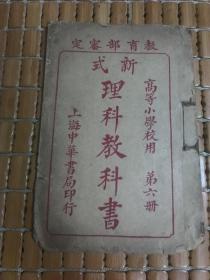 教育部審定
新式
理科教科書
高等小學校用
第六册
上海中華書局印行